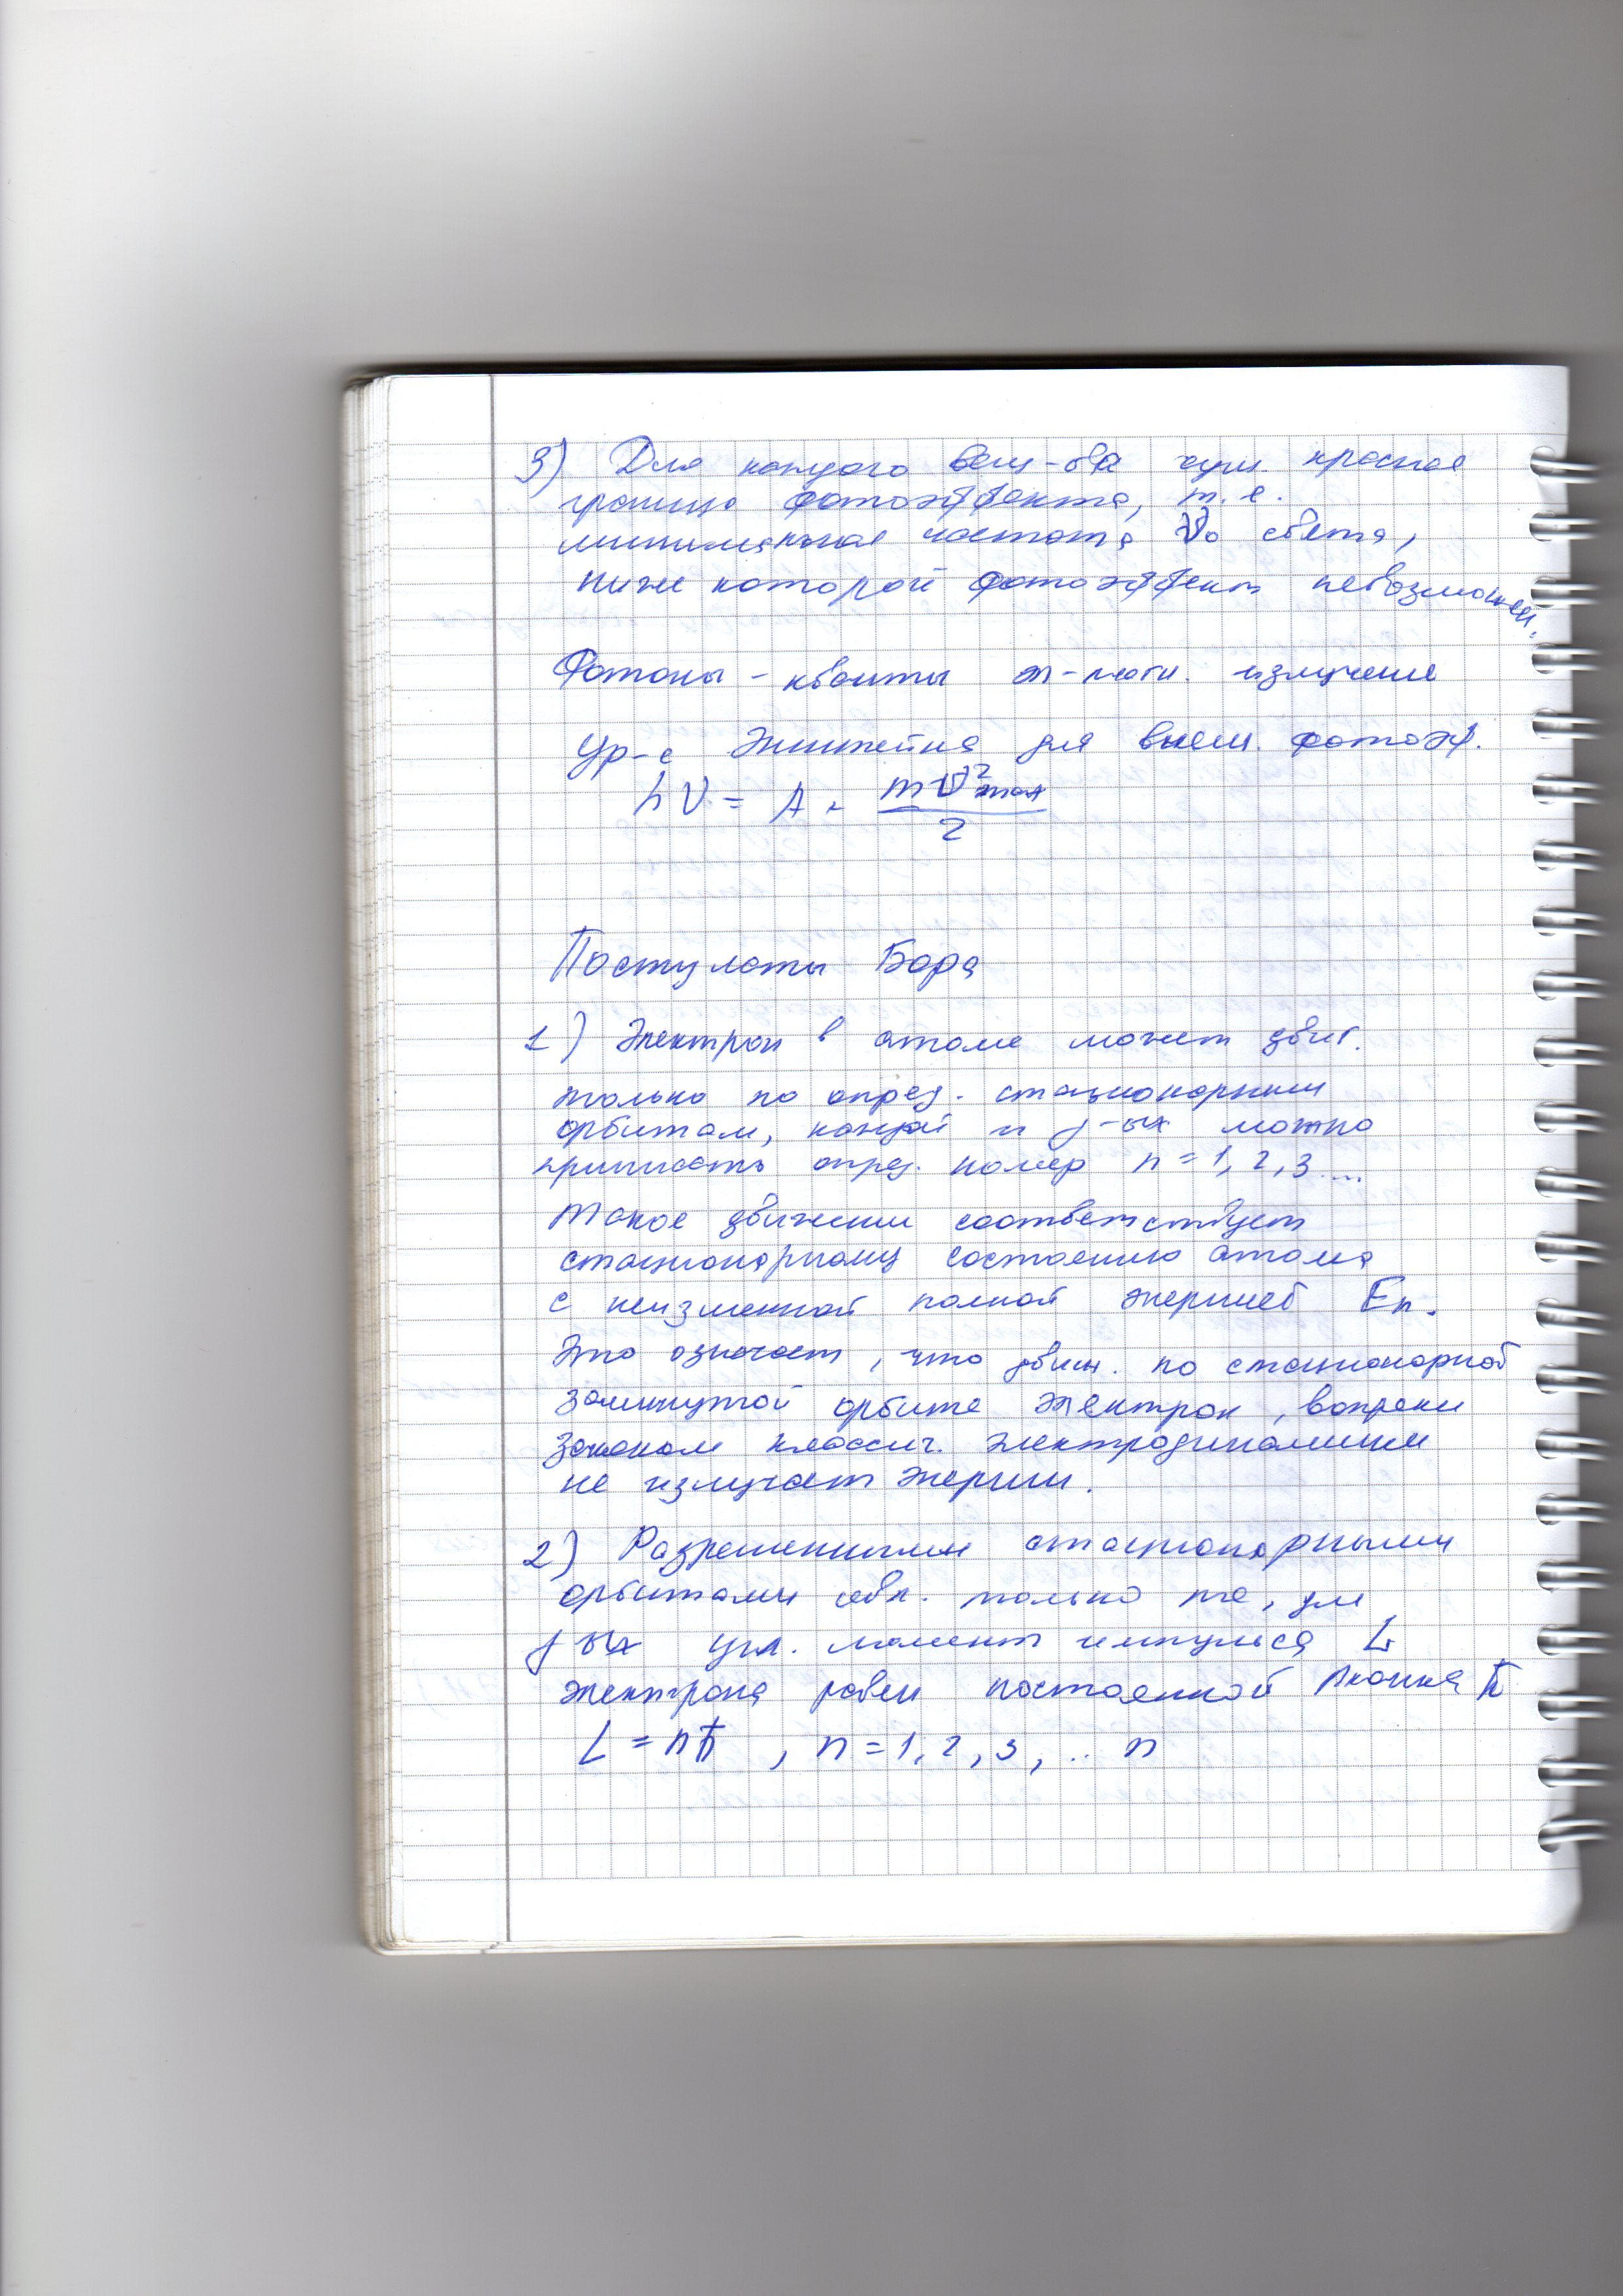 3) Для каждого вещ-ва сущ. красная
граница фотоэффекта, т.е.
минимальная частота ν₀ света,
ниже которой фотоэффект невозможен.
Фотоны - кванты эл-магн. излучения
Ур-е Эйнштейна для внеш. фотоэф.
hν = A + mv²max / 2
Постулаты Бора
1) Электрон в атоме может двиг.
только по опред. стационарным
орбитам, каждой из j-ых можно
приписать опред. номер n = 1, 2, 3 ...
Такое движение соответствует
стационарному состоянию атома
с неизменной полной энергией En.
Это означает, что движ. по стационарной
замкнутой орбите электрон, вопреки
законам классич. электродинамики
не излучает энергии.
2) Разрешенными стационарными
орбитами явл. только те, для
j-ых угл. момент импульса L
электрона равен постоянной Планка ħ
L = nħ , n = 1, 2, 3, .. n